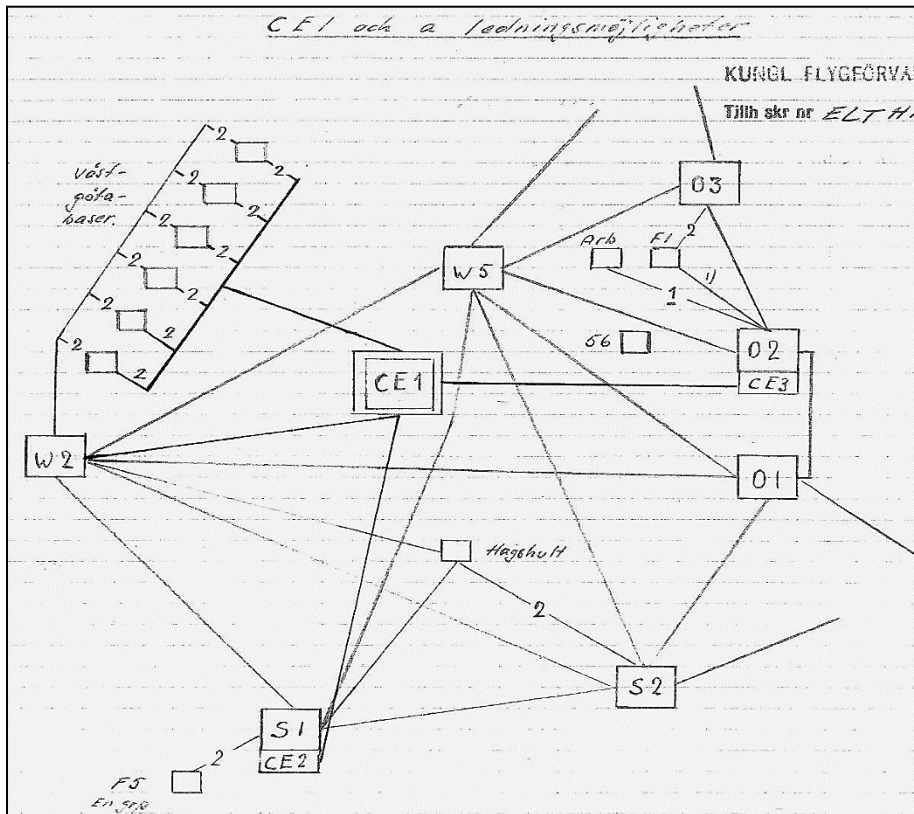 CE1 och a ledningsmöjligheter
KUNGL FLYGFÖRVA
Tillh skr nr ELTH
Väst-
göta-
baser.
2
2
2
2
2
2
2
2
2
2
2
2
O3
Arb
F1
2
W5
1)
1
56
O2
CE3
CE1
W2
O1
Hagshult
2
S2
S1
CE2
2
F5
En grp